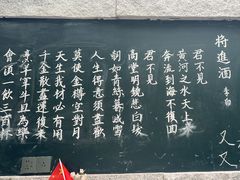 將進酒 李白
君不見
黃河之水天上來
奔流到海不復回
君不見
高堂明鏡悲白髮
朝如青絲暮成雪
人生得意須盡歡
莫使金樽空對月
天生我材必有用
千金散盡還復來
烹羊宰牛且為樂
會須一飲三百杯
又又